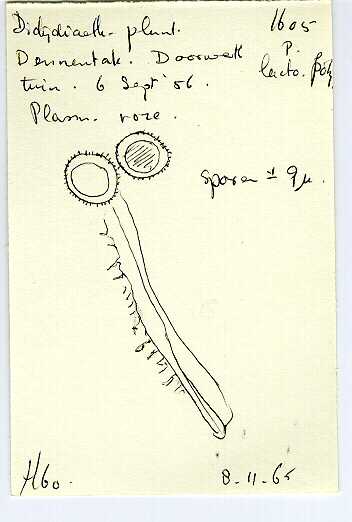 Didydiaeth. plant. 1605
Dennentak. Doorwerth P.
tuin. 6 Sept '56. lacto. Föh
Plasm. roze.
sporen ± 9 µ.
H60. 8-11-65